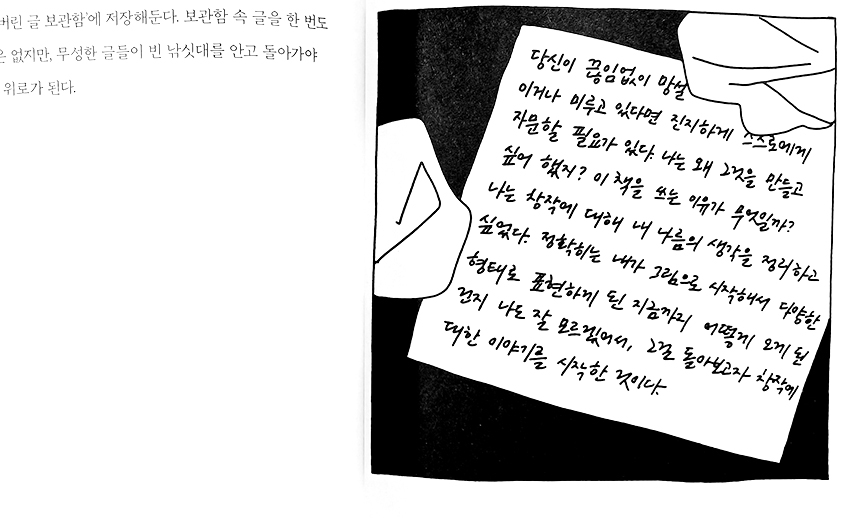 버린 글 보관함'에 저장해둔다. 보관함 속 글을 한 번도
은 없지만, 무성한 글들이 빈 낚싯대를 안고 돌아가야
위로가 된다.
당신이 끊임없이 망설
이거나 미루고 있다면 진지하게 스스로에게
자문할 필요가 있다. 나는 왜 그것을 만들고
싶어 했지? 이 책을 쓰는 이유가 무엇일까?
나는 창작에 대해 내 나름의 생각을 정리하고
싶었다. 정확히는 내가 그림으로 시작해서 다양한
형태로 표현하게 된 지금까지 어떻게 오게 된
건지 나도 잘 모르겠어서, 그걸 돌아보고자 창작에
대한 이야기를 시작한 것이다.